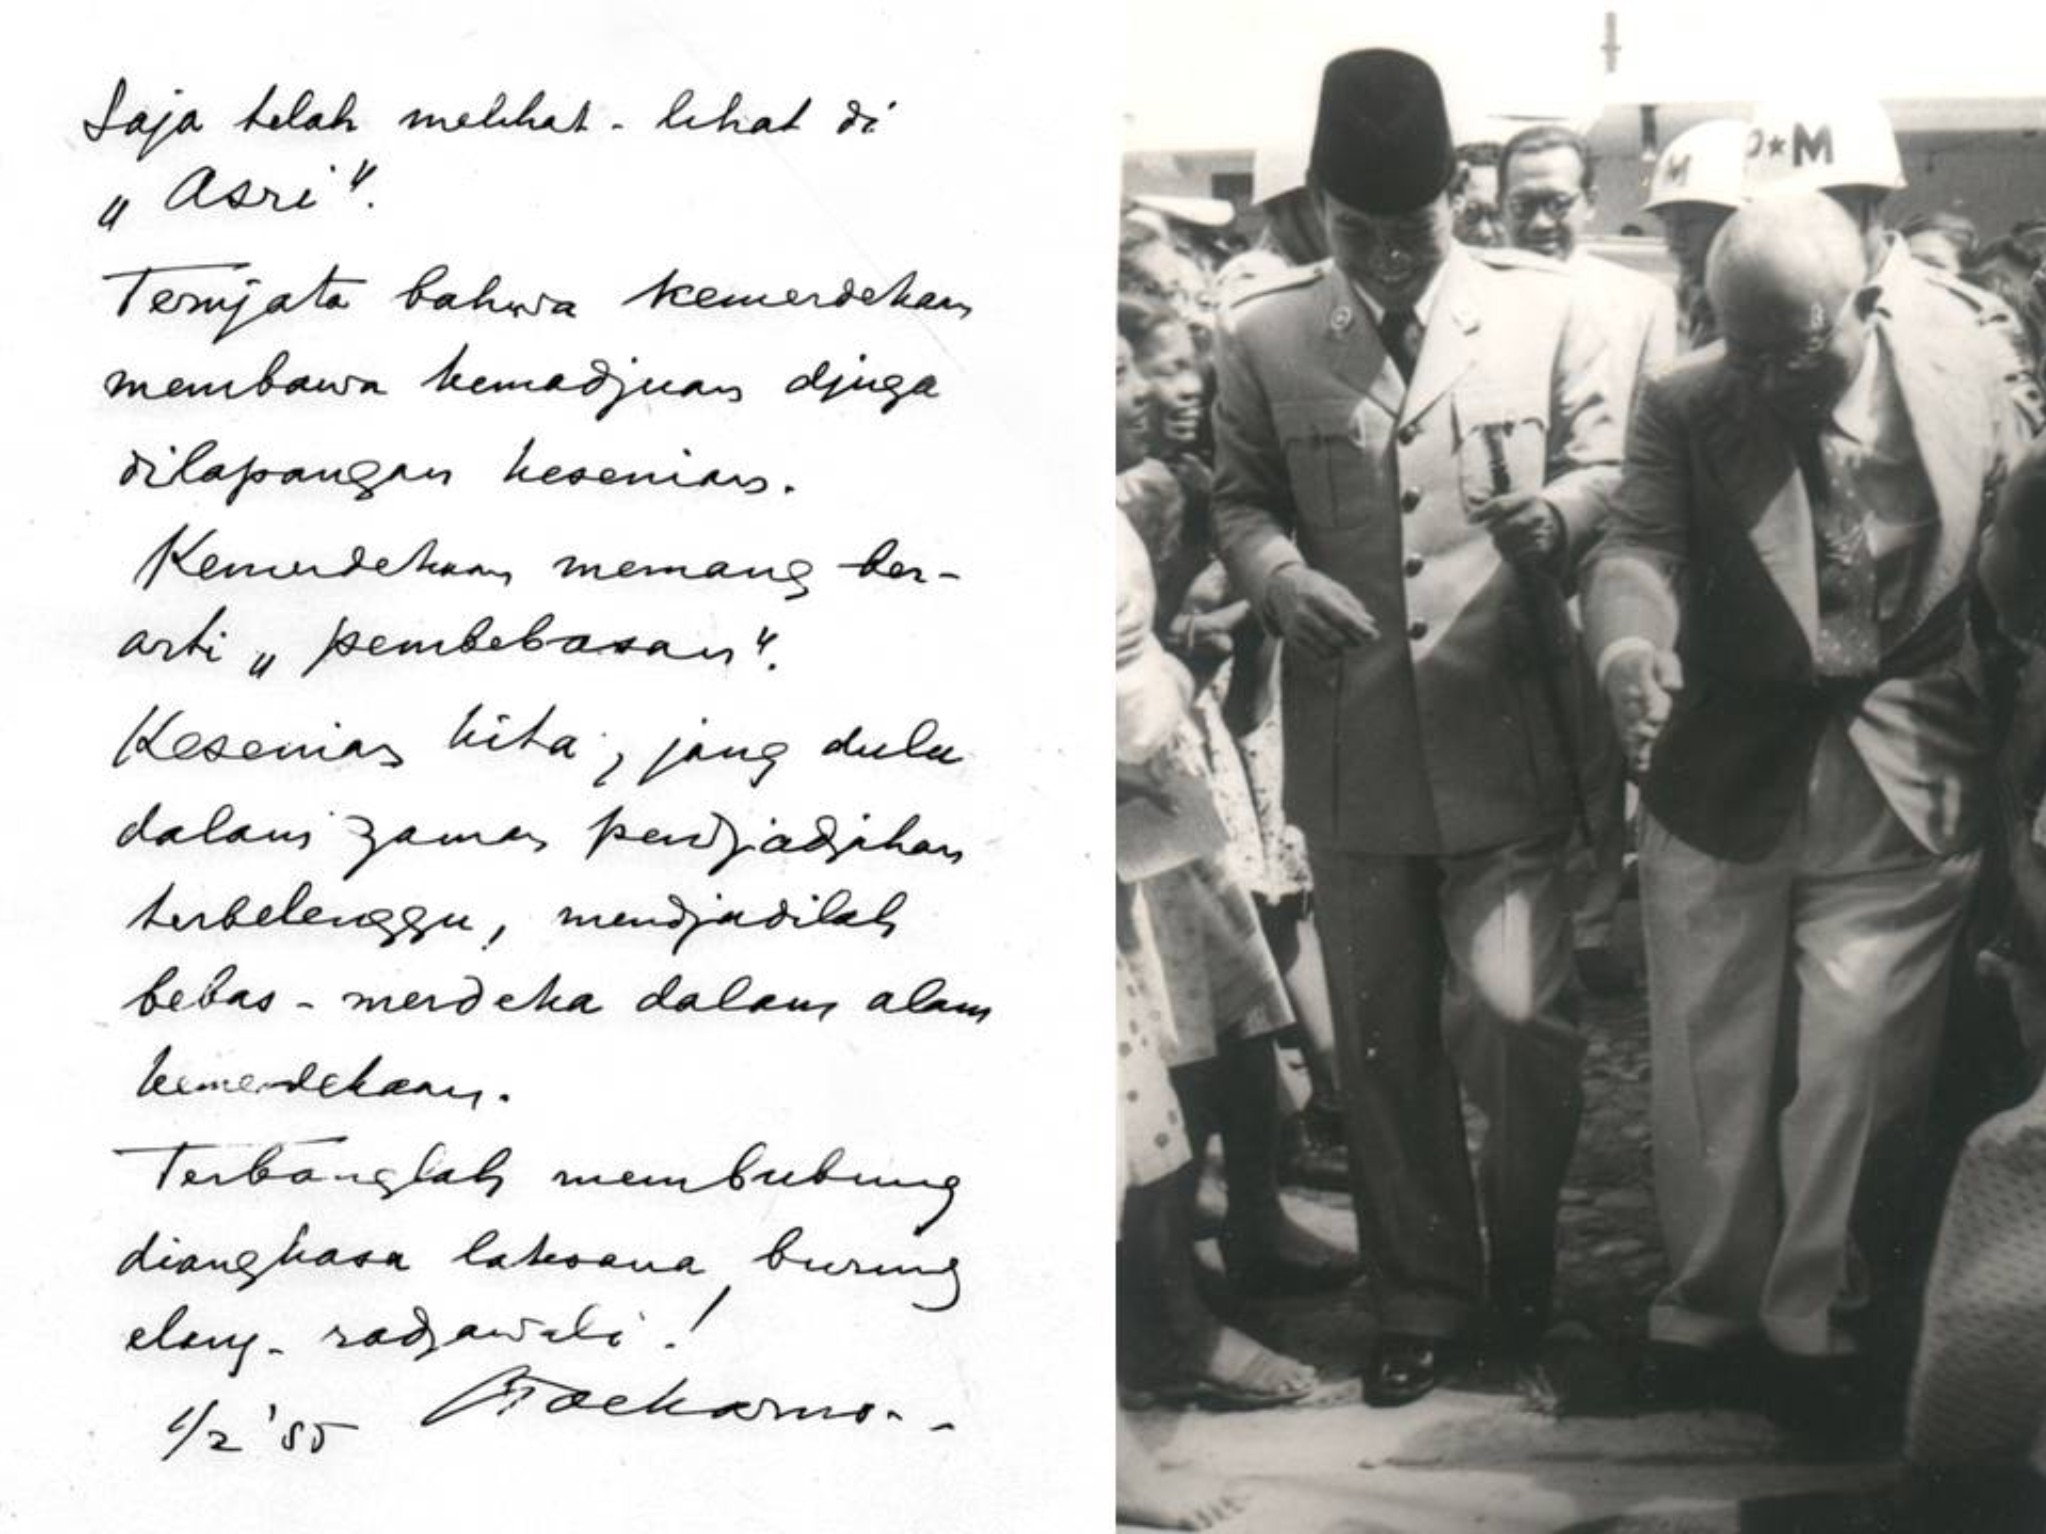 Saja telah melihat-lihat di
„Asri".
Ternjata bahwa kemerdekaan
membawa kemadjuan djuga
dilapangan kesenian.
Kemerdekaan memang ber-
arti „pembebasan".
Kesenian kita, jang dulu
dalam zaman pendjadjahan
terbelenggu, mendjadilah
bebas-merdeka dalam alam
kemerdekaan.
Terbanglah membubung
diangkasa laksana burung
elang-radjawali!
1/2 '55 Soekarno
M
P★M